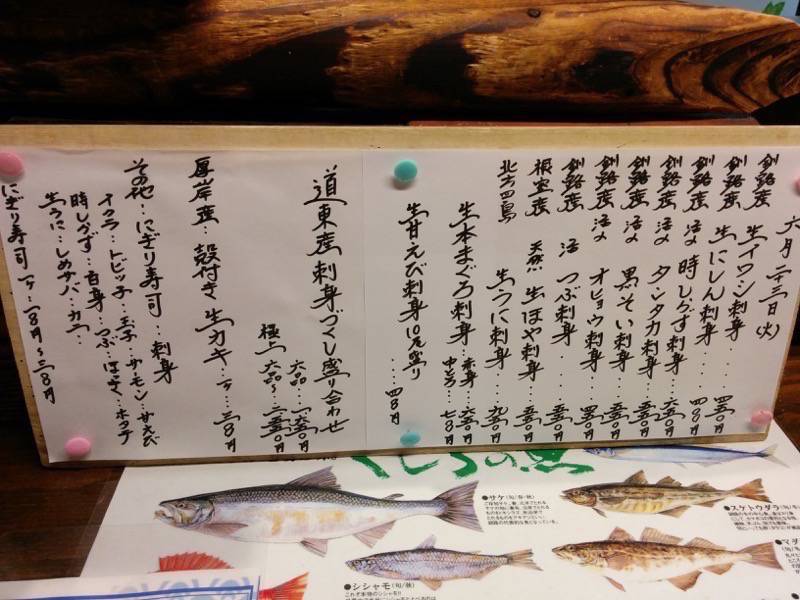 六月二十三日(火)
釧路産 生イワシ刺身……四五〇円
釧路産 生にしん刺身……四五〇円
釧路産 活〆 時しらず刺身…四八〇円
釧路産 活〆 タンタカ刺身…六五〇円
釧路産 活〆 黒そい刺身…五五〇円
釧路産 活〆 オヒョウ刺身…四五〇円
釧路産 活 つぶ刺身……五五〇円
根室産 天然 生ほや刺身…五五〇円
北方四島 生うに刺身…九五〇円
生本まぐろ刺身…赤身 六五〇円
中とろ…七八〇円
生甘えび刺身10尾盛り……四八〇円
道東産刺身づくし盛り合わせ
六品…一五〇〇円
極上 六品〜二五〇〇円
厚岸産…殻付き生カキ…一ヶ…二八〇円
その他…にぎり寿司…刺身
イクラ…トビッ子…玉子…サーモン…甘えび
時しらず…白身…つぶ…ほっき…ホタテ
生うに…しめサバ…カニ…
にぎり寿司一ヶ…一八〇円〜三八〇円
くしろの魚
●サケ(旬/春・秋)
●シシャモ(旬/秋)
これぞ本物のシシャモ!!
●スケトウダラ(旬/冬)
●マダ